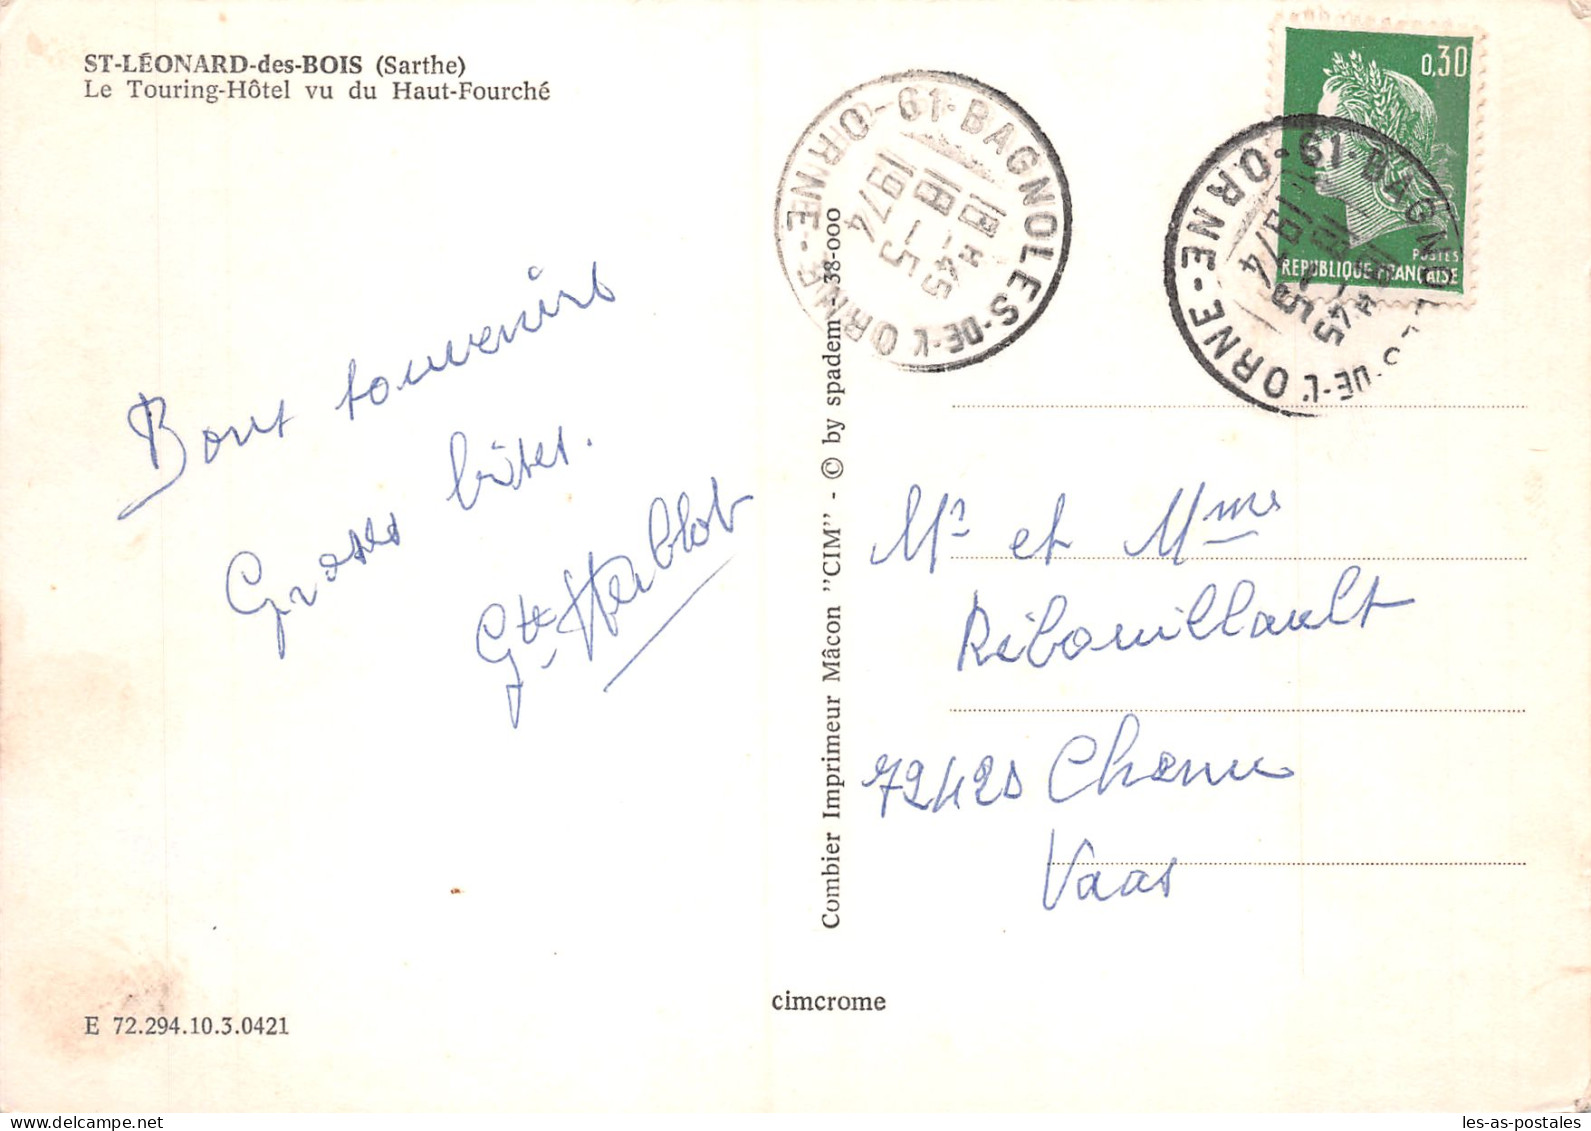 ST-LÉONARD-des-BOIS (Sarthe)
Le Touring-Hôtel vu du Haut-Fourché
Bons souvenirs
Grosses bises.
E 72.294.10.3.0421
Combier Imprimeur Mâcon "CIM" - © by spadem - 38-000
cimcrome
61-BAGNOLES-DE-L'ORNE
ORNE
18 H 45
18 - 5
1974
0,30
POSTES
REPUBLIQUE FRANÇAISE
61-BAGNOLES-DE-L'ORNE
ORNE
18 H 45
18 - 5
1974
Mr et Mme
Ribouillault
72420 Chenu
Vaas
les-as-postales